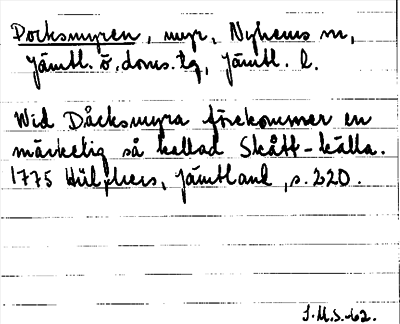 Docksmyren, myr, Nyhems sn,
Jämtl. ö. doms. tg, Jämtl. l.
Wid Dåcksmyra förekommer en
märkelig så kallad Skått-källa.
1775 Hülphers, Jämtland, s. 220.
J.M.S.-62.